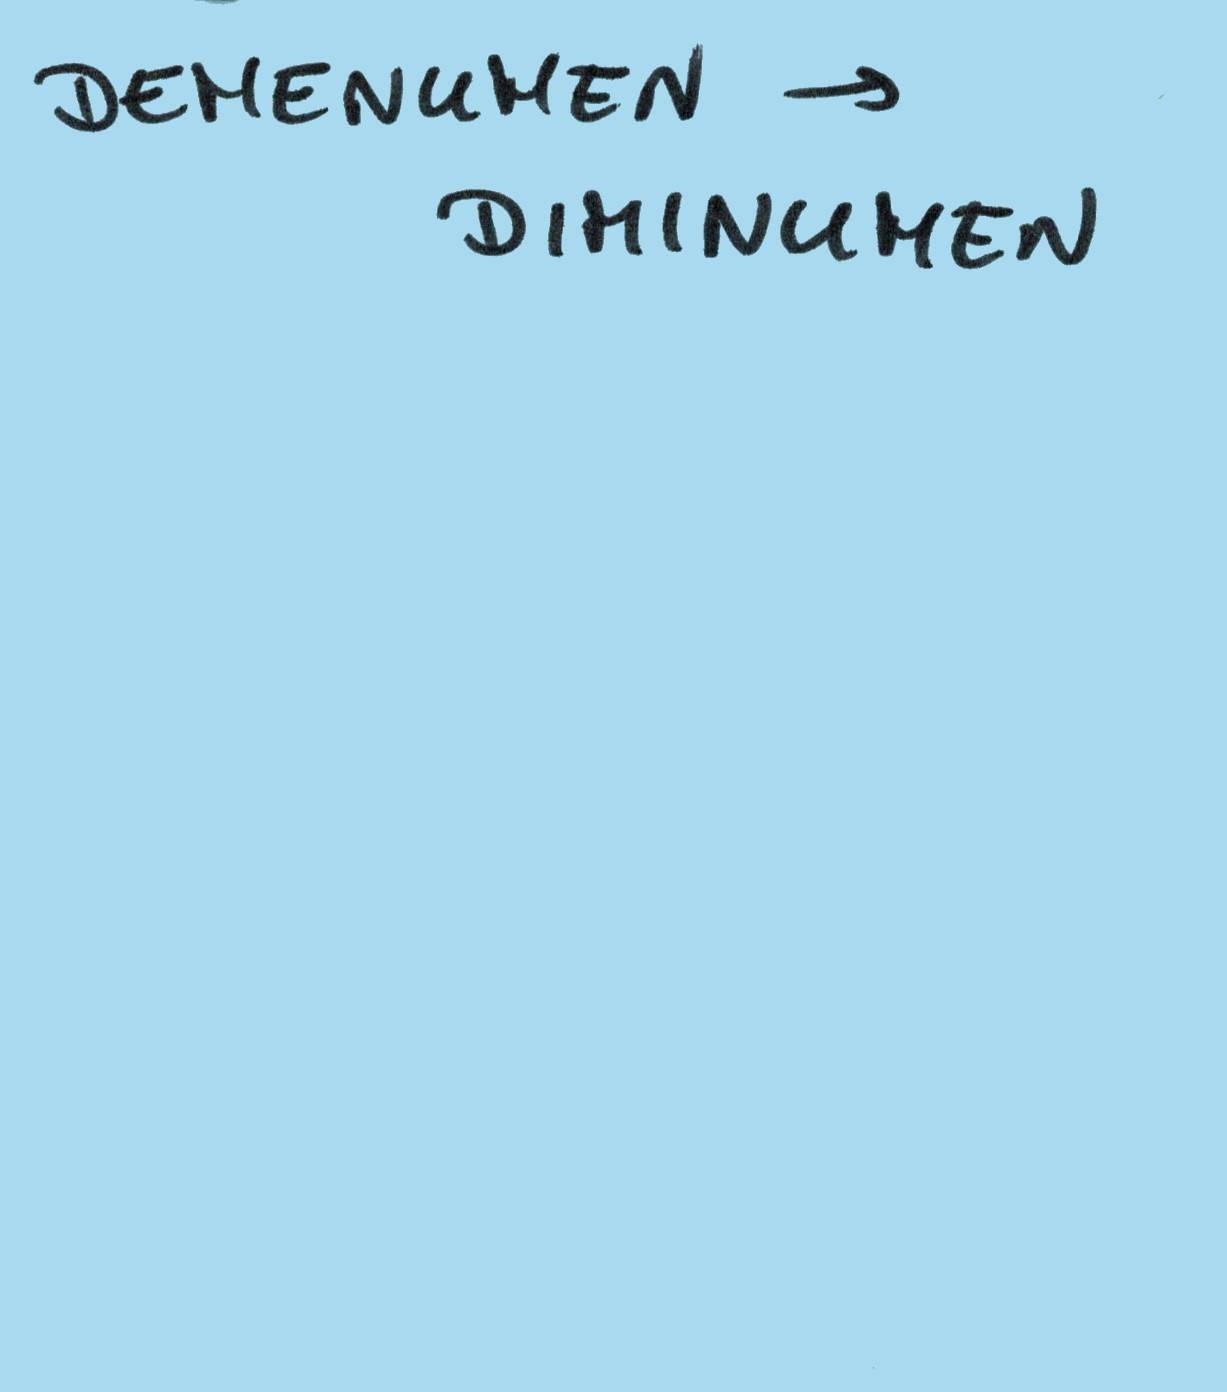 DEMENUMEN →
DIMINUMEN